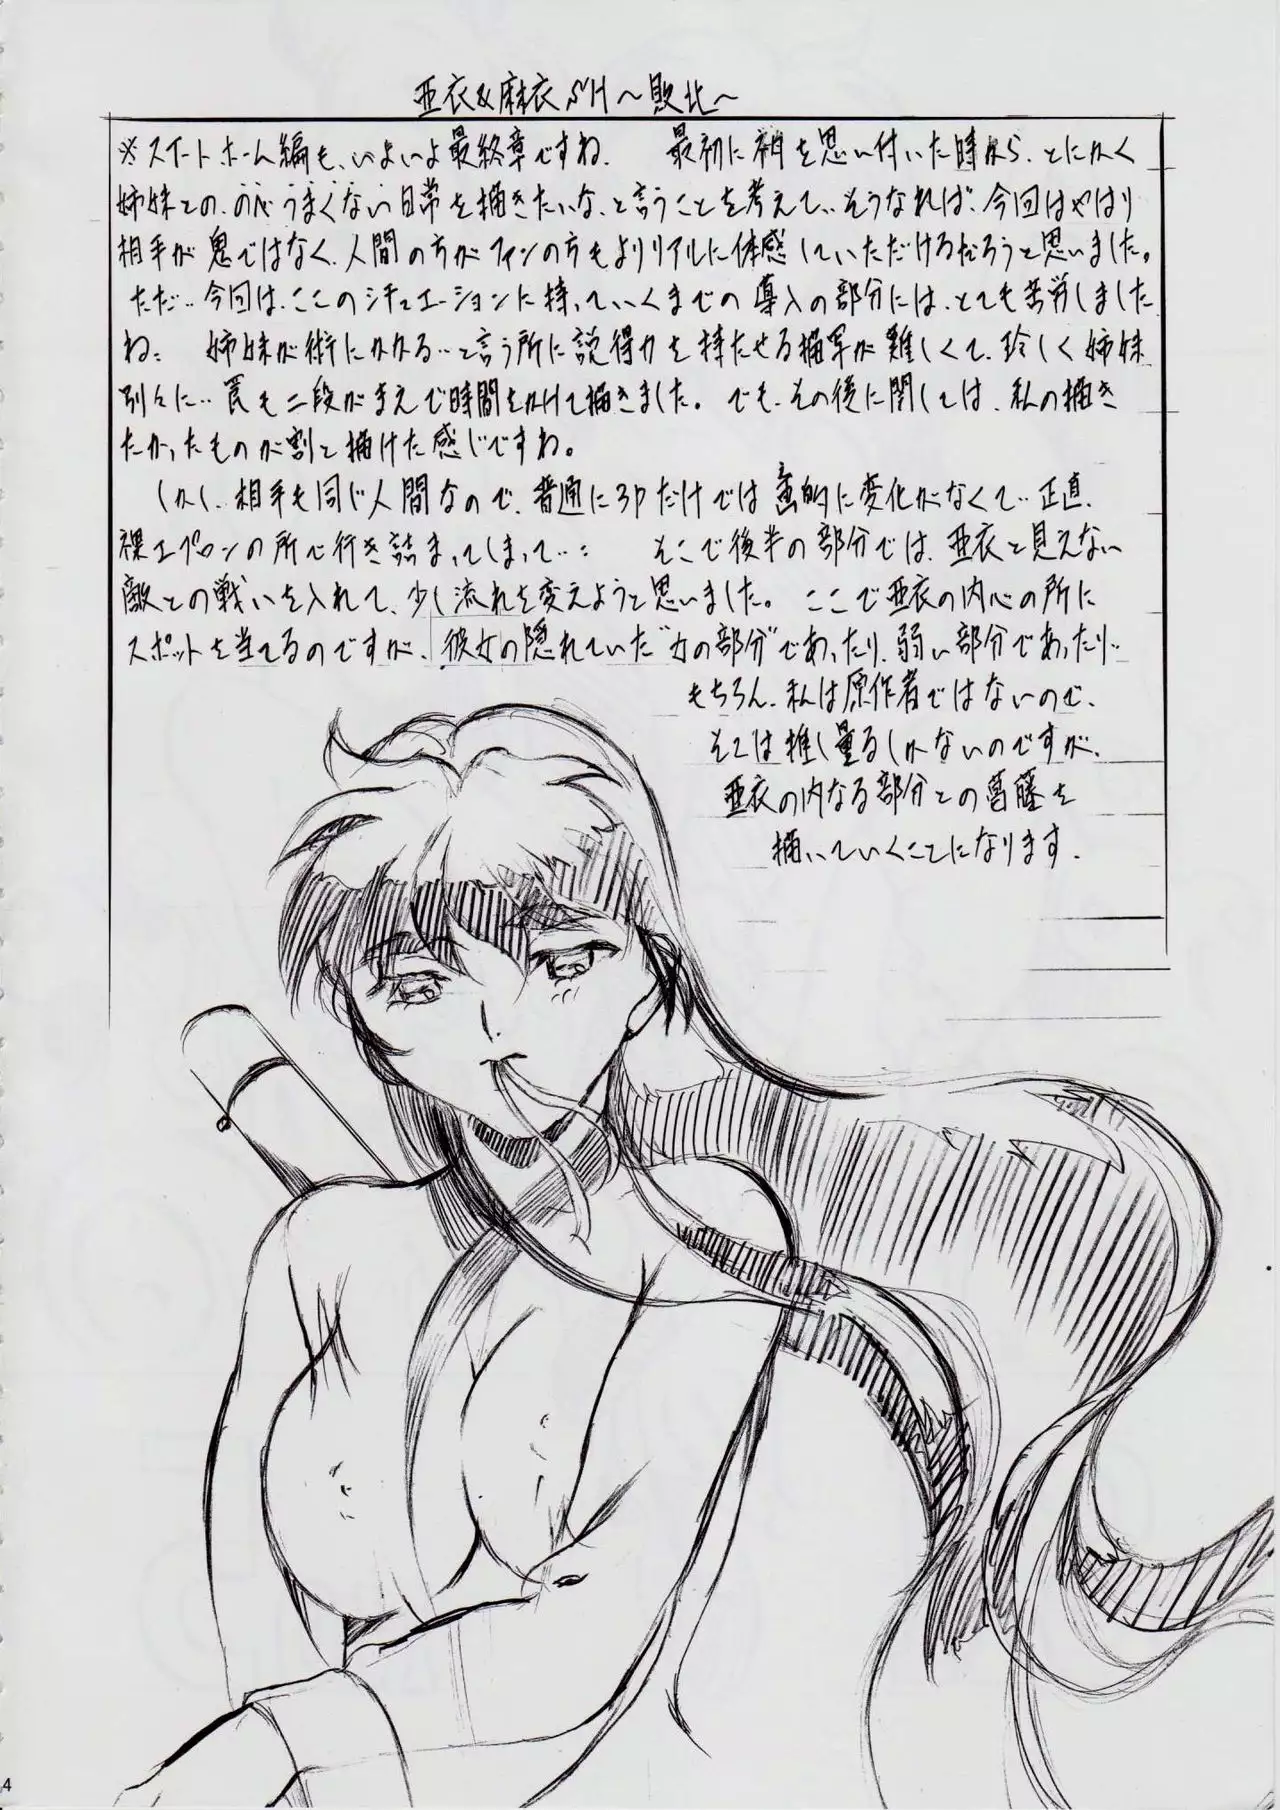 亜衣&麻衣SH～敗北～
※スイートホーム編も、いよいよ最終章ですね. 最初に神を思い付いた時から、とにかく
姉妹との、のっぴきうまくない日常を描きたいな、と言うことを考えて、、そうなれば、今回はやはり
相手が鬼ではなく、人間の方がファンの方もよりリアルに体感していただけるだろうと思いました。
ただ‥今回は、ここのシチュエーションに持っていくまでの導入の部分には、とても苦労しました
ね: 姉妹が術にかかる‥と言う所に説得力を持たせる描写が難しくて、珍しく姉妹
別々に‥罠も二段がまえで時間をかけて描きました。でも、その後に関しては、私の描き
たかったものが割と描けた感じですね。
しかし、相手も同じ人間なので、普通に3Pだけでは画的に変化がなくて‥正直、
裸エプロンの所で行き詰まってしまって‥: そこで後半の部分では、亜衣と見えない
敵との戦いを入れて、少し流れを変えようと思いました。ここで亜衣の内心の所に
スポットを当てるのですが、彼女の隠れていた"女の部分"であったり、弱い部分であったり‥
もちろん、私は原作者ではないので、
そこは推し量るしかないのですが、
亜衣の内なる部分との葛藤を
描いていくことになります.
4